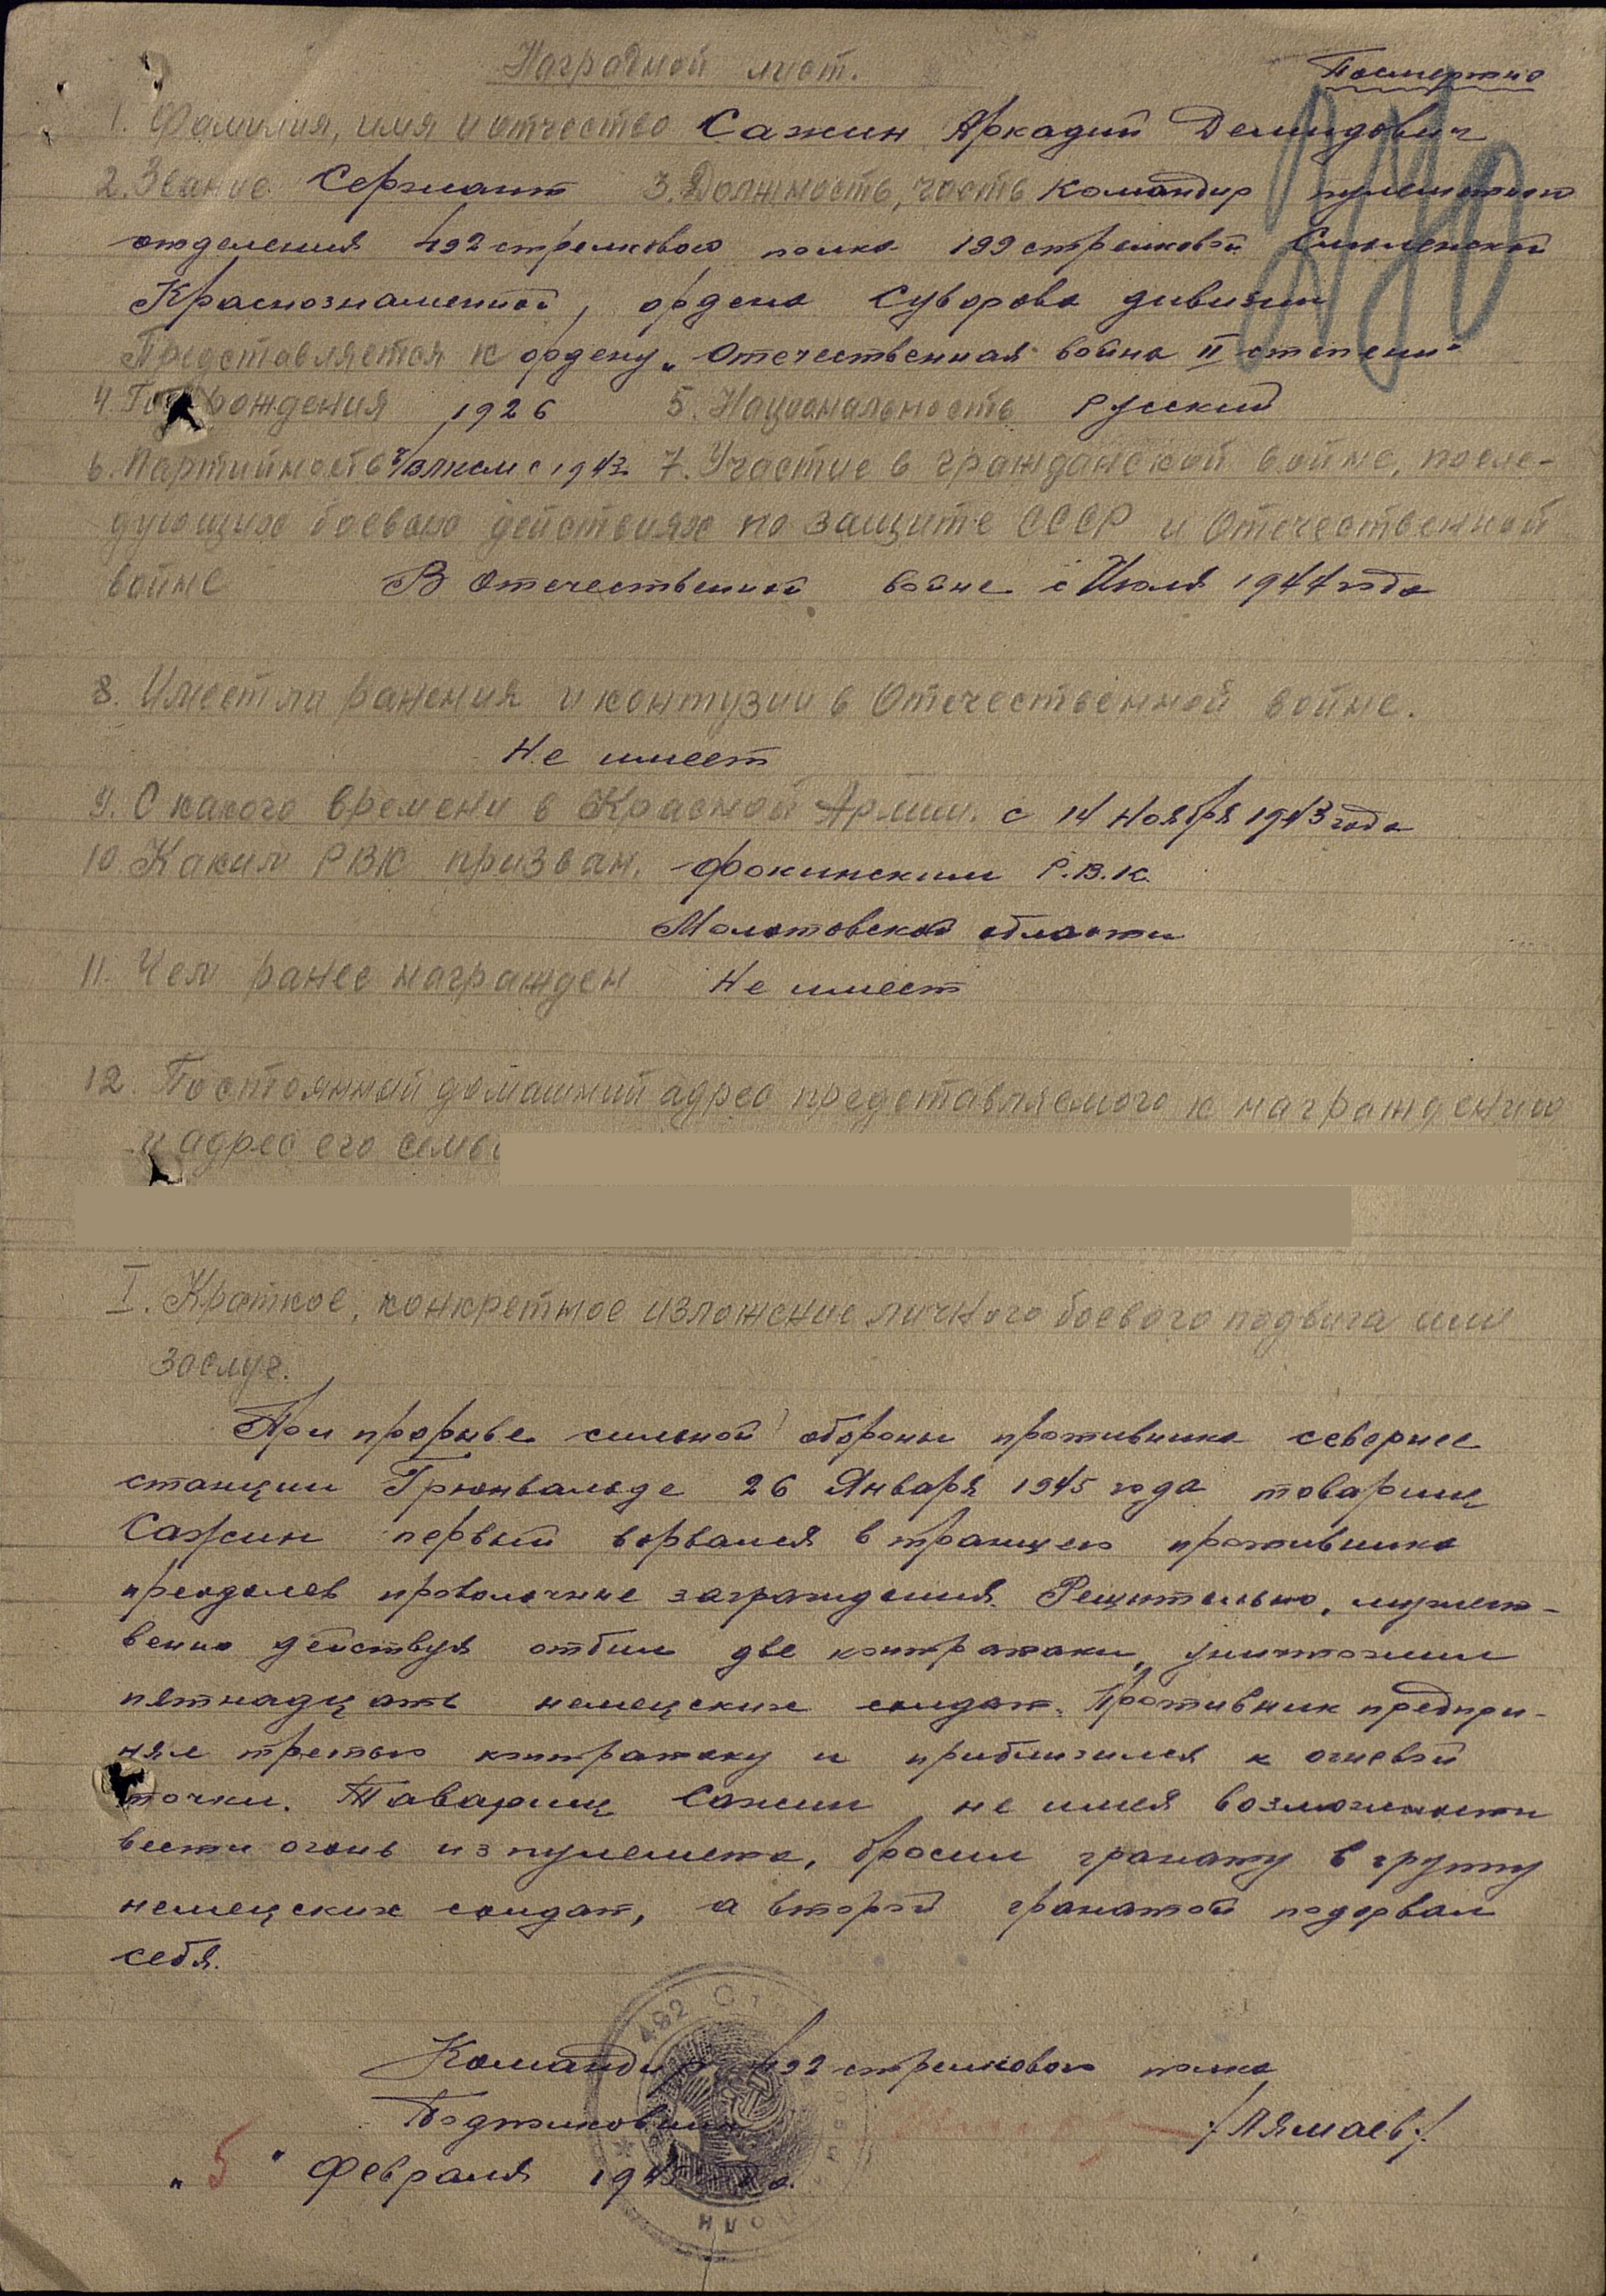 Наградной лист.
Посмертно
1. Фамилия, имя и отчество Сажин Аркадий Демидович
2. Звание Сержант 3. Должность, часть Командир пулеметного
отделения 492 стрелкового полка 199 стрелковой Смоленской
Краснознаменной, ордена Суворова дивизии
Представляется к ордену „Отечественная война II степени"
4. Год рождения 1926 5. Национальность Русский
6. Партийность ч/влксм с 1943 7. Участие в гражданской войне, после-
дующих боевых действиях по защите СССР и Отечественной
войне В Отечественной войне с Июля 1944 года
8. Имеет ли ранения и контузии в Отечественной войне.
Не имеет
9. С какого времени в Красной Армии. с 14 Ноября 1943 года
10. Каким РВК призван. Фокинским Р.В.К.
Молотовской области
11. Чем ранее награжден Не имеет
12. Постоянный домашний адрес представляемого к награждению
и адрес его семьи
I. Краткое, конкретное изложение личного боевого подвига или
заслуг.
При прорыве сильной обороны противника севернее
станции Грюнвальде 26 Января 1945 года товарищ
Сажин первый ворвался в траншею противника
преодолев проволочные заграждения. Решительно, мужест-
венно действуя отбил две контратаки, уничтожил
пятнадцать немецких солдат. Противник предпри-
нял третью контратаку и приблизился к огневой
точки. Таварищ Сажин не имея возможности
вести огонь из пулемета, бросил гранату в группу
немецких солдат, а второй гранатой подорвал
себя.
Командир 492 стрелкового полка
Подполковник /Лямаев/.
„5" Февраля 1945 г.
492 Ст